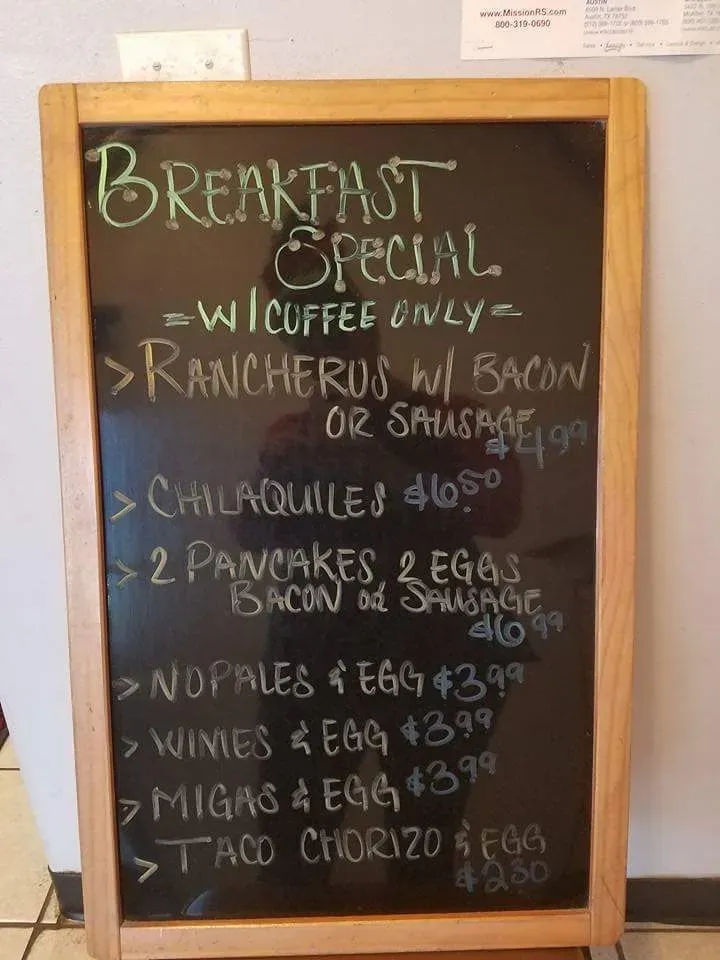 www.MissionRS.com
800-319-0690
AUSTIN
Austin, TX 78752
BREAKFAST
SPECIAL
=W/COFFEE ONLY=
>RANCHEROS W/ BACON
OR SAUSAGE
$4.99
> CHILAQUILES $6.50
> 2 PANCAKES 2 EGGS
BACON OR SAUSAGE
$6.99
> NOPALES & EGG $3.99
> WINIES & EGG $3.99
> MIGAS & EGG $3.99
> TACO CHORIZO & EGG
$2.50